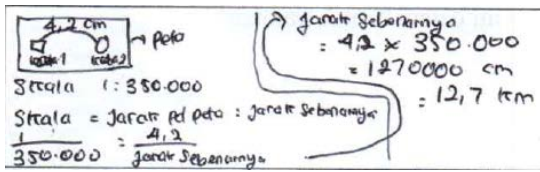 4,2 cm
Peta
Skala 1 : 350.000
Skala = Jarak pd peta : Jarak Sebenarnya
1 / 350.000 = 4,2 / Jarak Sebenarnya
Jarak Sebenarnya
= 4,2 x 350.000
= 1270000 cm
= 12,7 km